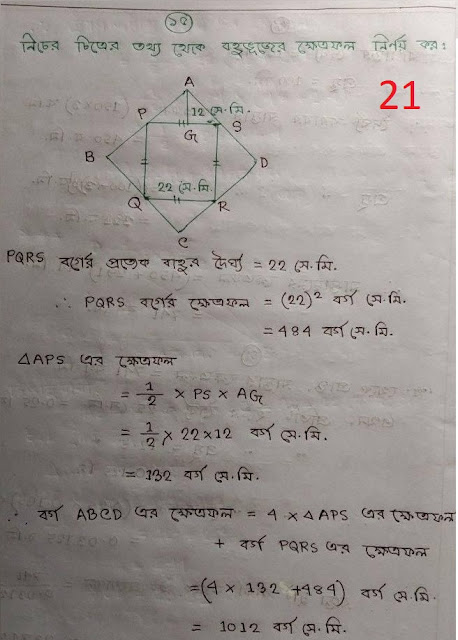 ১৫
নিচের চিত্রের তথ্য থেকে বহুভুজের ক্ষেত্রফল নির্ণয় কর:
21
A
12 সে.মি.
P
G
S
B
D
22 সে.মি.
Q
R
C
PQRS বর্গের প্রত্যেক বাহুর দৈর্ঘ্য = 22 সে.মি.
∴ PQRS বর্গের ক্ষেত্রফল = (22)² বর্গ সে.মি.
= 484 বর্গ সে.মি.
△APS এর ক্ষেত্রফল
= 1/2 × PS × AG
= 1/2 × 22×12 বর্গ সে.মি.
= 132 বর্গ সে.মি.
∴ বর্গ ABCD এর ক্ষেত্রফল = 4 × △APS এর ক্ষেত্রফল
+ বর্গ PQRS এর ক্ষেত্রফল
=(4 × 132 +484) বর্গ সে.মি.
= 1012 বর্গ সে.মি.